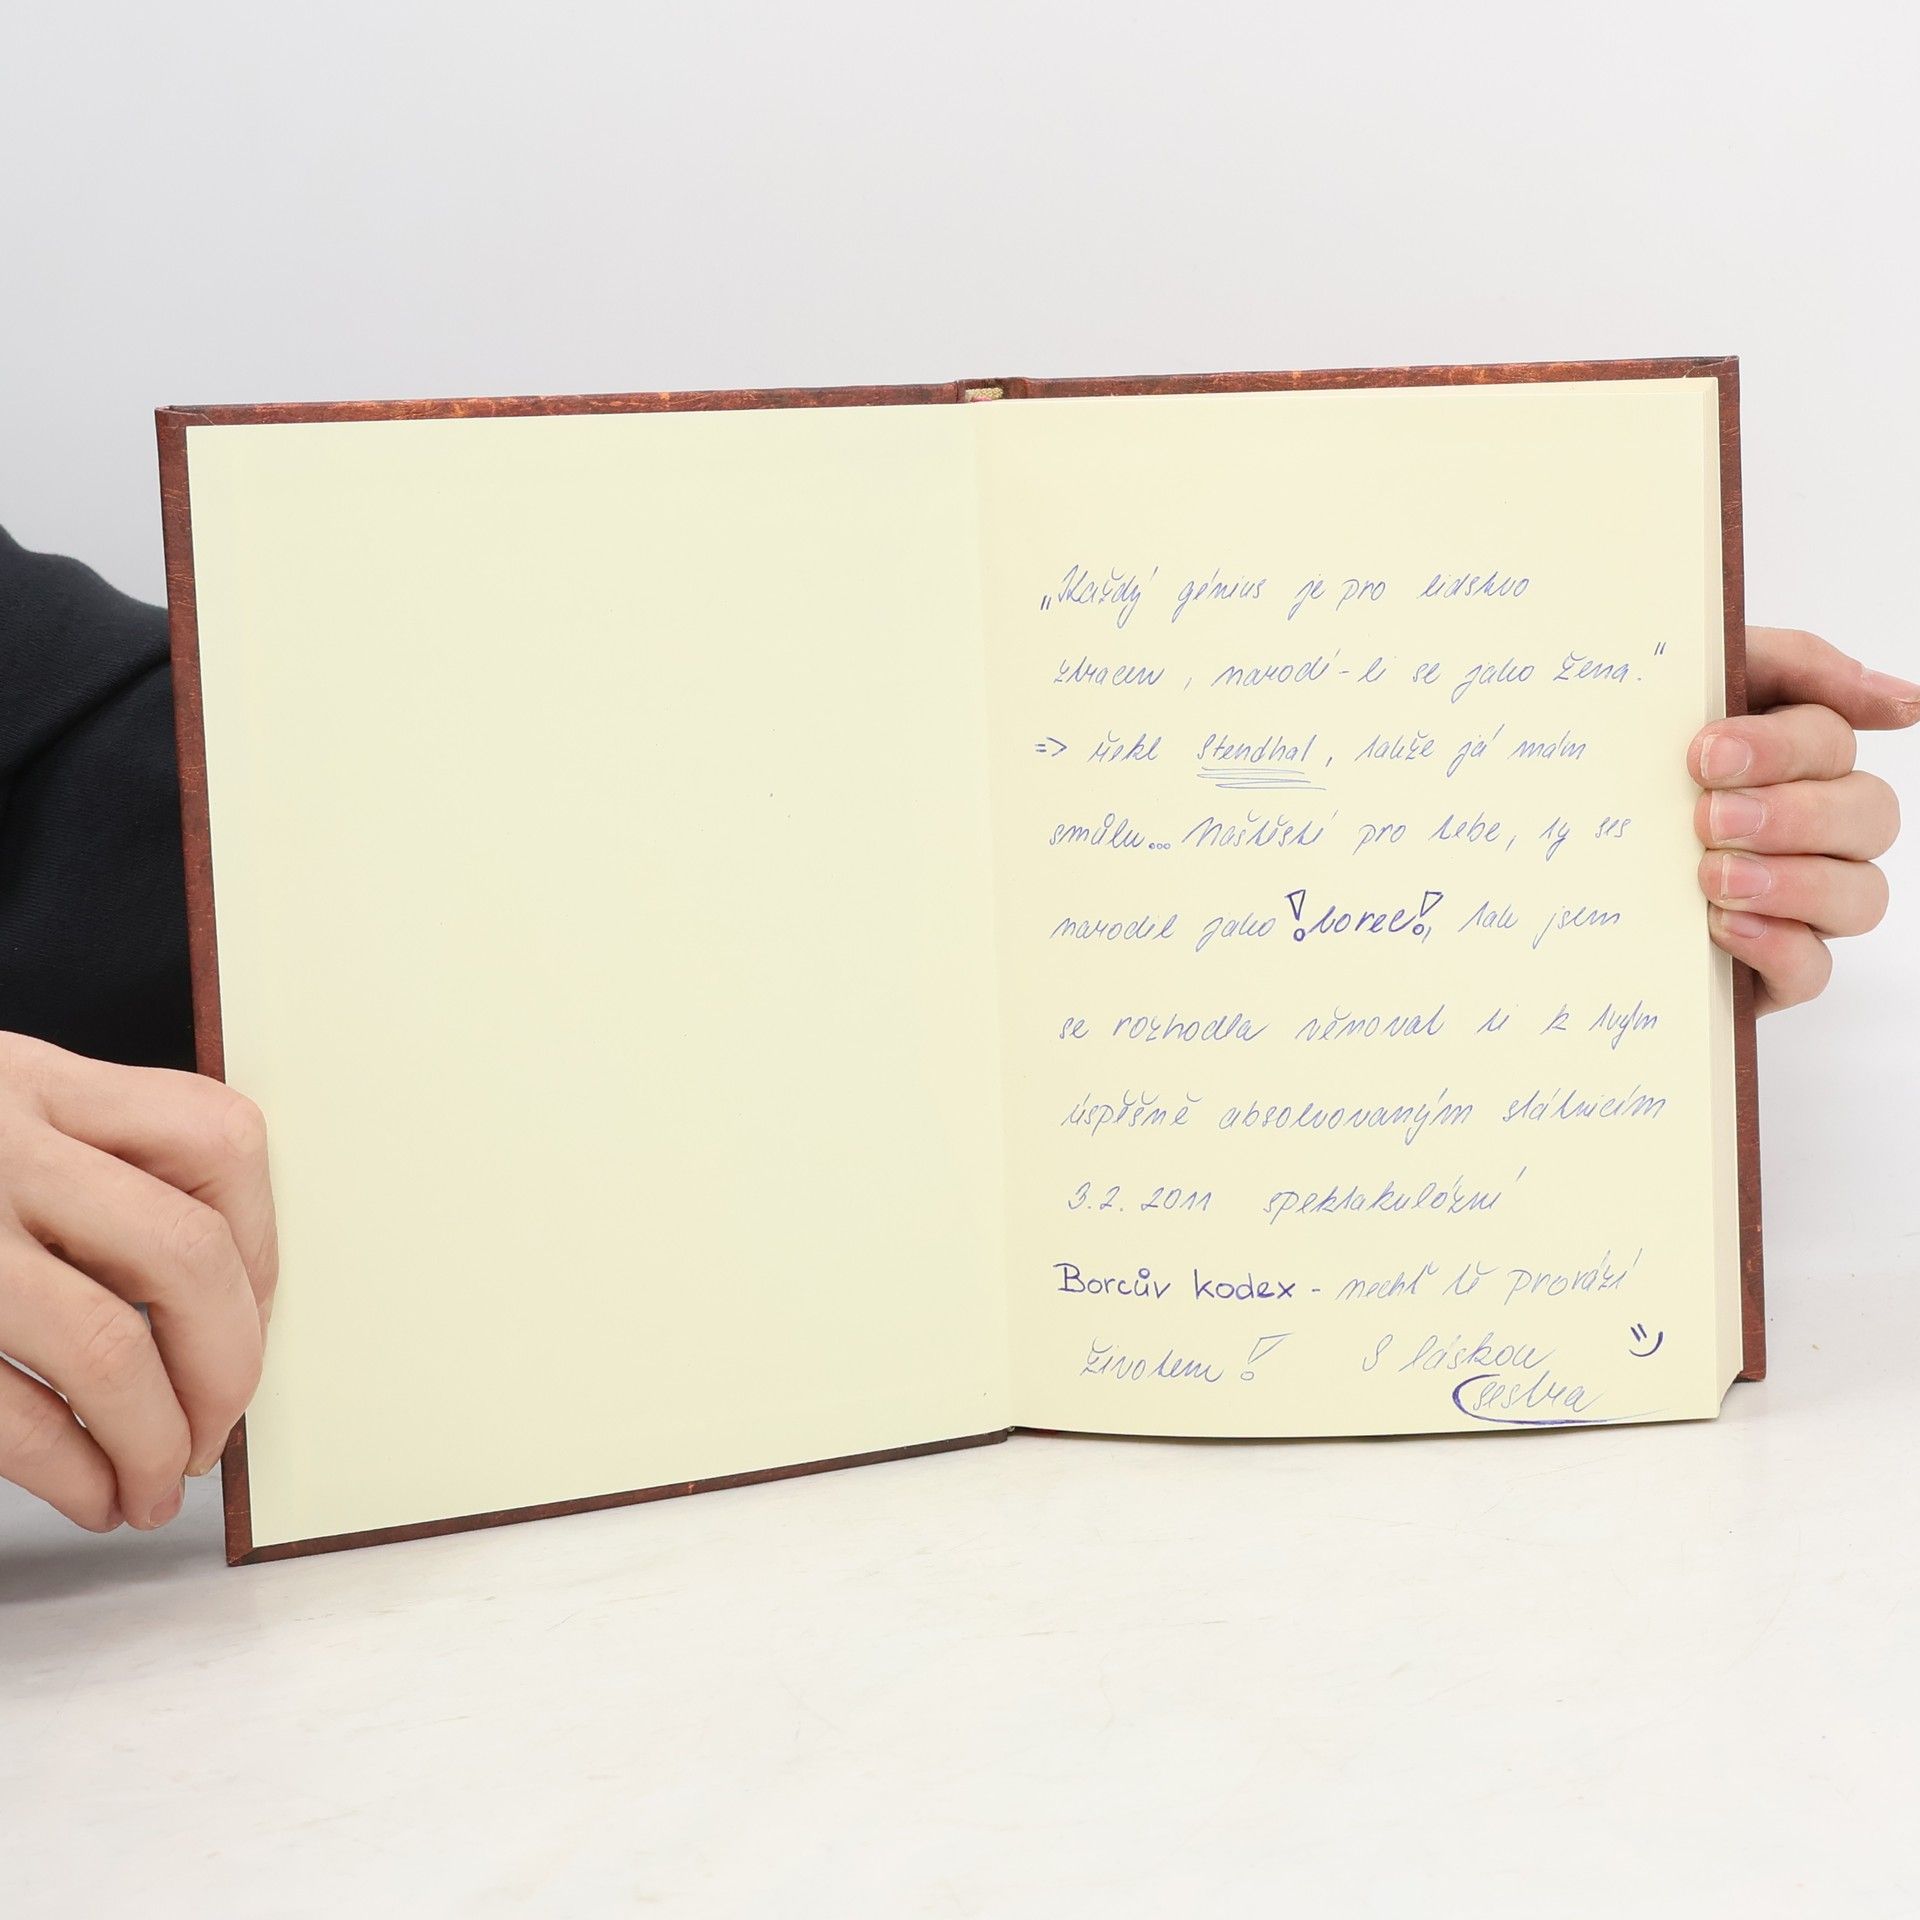 „Každý génius je pro lidstvo
ztracen, narodí-li se jako žena."
=> řekl Stendhal, takže já mám
smůlu... Naštěstí pro tebe, ty ses
narodil jako !borec!, tak jsem
se rozhodla věnovat ti k tvým
úspěšně absolvovaným státnicím
3.2. 2011 spektakulózní
Borcův kodex - nechť tě provází
životem! S láskou
sestra